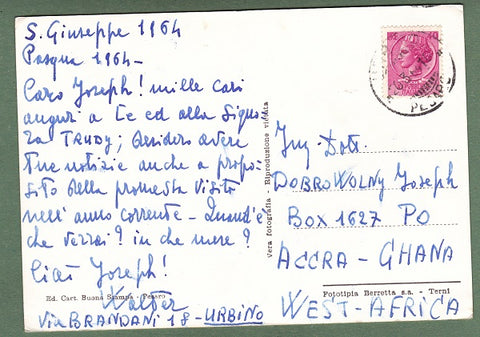 S. Giuseppe 1964
Pasqua 1964-
Caro Joseph! mille cari
auguri a te ed alla Signo
ra TRUDY; desidero avere
tue notizie anche a propo
sito della promessa visita
nell'anno corrente - Quand'è
che verrai? in che mese?
Ciao Joseph!
Walter
Via BRANDANI 18 - URBINO
Ed. Cart. Buona Stampa - Pesaro
Vera fotografia - Riproduzione vietata
Ing. Dott.
DOBROWOLNY Joseph
BOX 1627 PO
ACCRA - GHANA
WEST-AFRICA
Fototipia Berretta s.a. - Terni